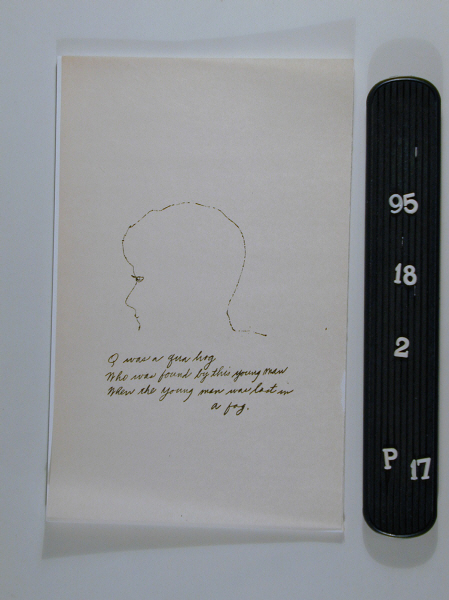 Q was a qua hog
Who was found by this young man
When the young man was lost in
a fog.
95
18
2
P 17